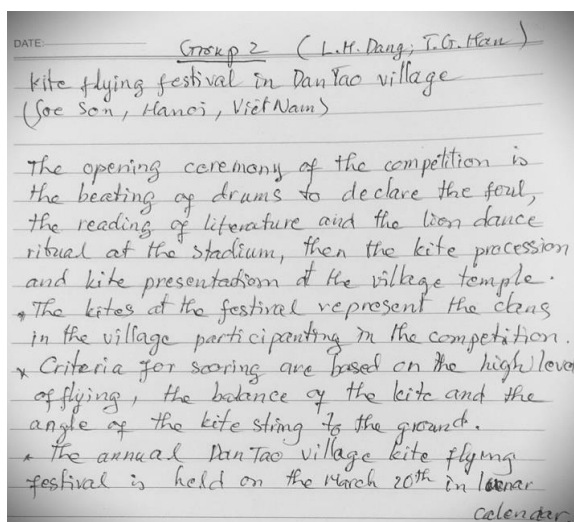 DATE:
Group 2 (L.H. Dang; T.G. Han)
Kite flying festival in Dan Tao village
(Soc Son, Hanoi, Viet Nam)
The opening ceremony of the competition is
the beating of drums to declare the foul,
the reading of literature and the lion dance
ritual at the stadium, then the kite procession
and kite presentation at the village temple.
* The kites at the festival represent the clans
in the village participanting in the competition.
* Criteria for scoring are based on the high level
of flying, the balance of the kite and the
angle of the kite string to the ground.
* The annual Dan Tao village kite flying
festival is held on the March 20th in lunar
calendar